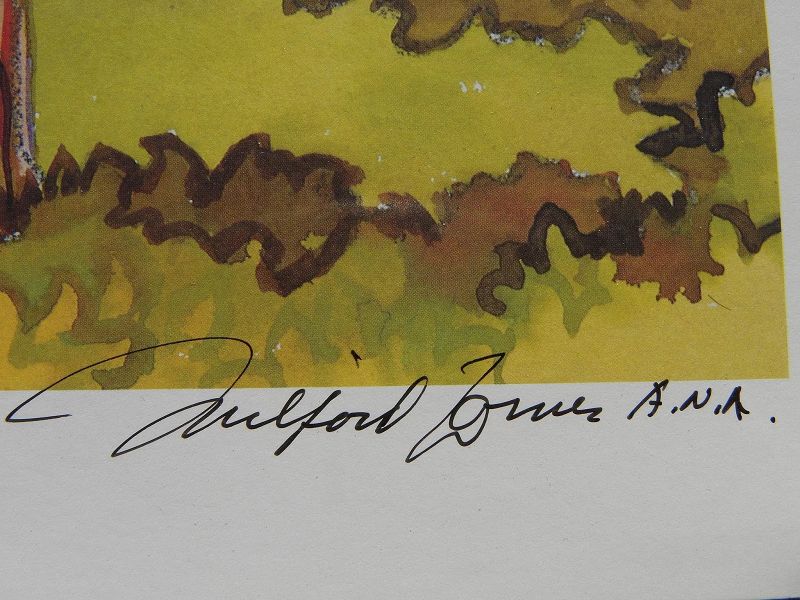 Milford Zornes A.N.A.